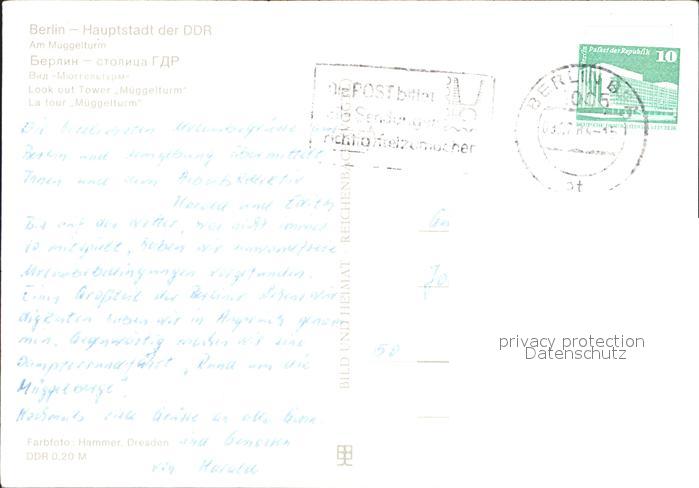 Berlin – Hauptstadt der DDR
Am Müggelturm
Берлин – столица ГДР
Вид «Мюггельтурм»
Look out Tower „Müggelturm“
La tour „Müggelturm“
Die POST bittet
die Sendungen
richtig freizumachen
BERLIN
Palast der Republik 10
Die besten Urlaubsgrüße aus
Berlin und Umgebung übermitteln
Ihnen und dem Arbeitskollektiv
Harald und Edith
Bis auf das Wetter, was nicht immer
so mitspielt, haben wir einwandfreie
Urlaubsbedingungen vorgefunden.
Einen Großteil der Berliner Sehenswür-
digkeiten haben wir in Anspruch genom-
men. Gegenwärtig machen wir eine
Dampferrundfahrt „Rund um die
Müggelberge“.
Nochmals viele Grüße an alle
und Genossen
Harald
BILD UND HEIMAT REICHENBACH
50
privacy protection
Datenschutz
Farbfoto: Hammer, Dresden
DDR 0,20 M